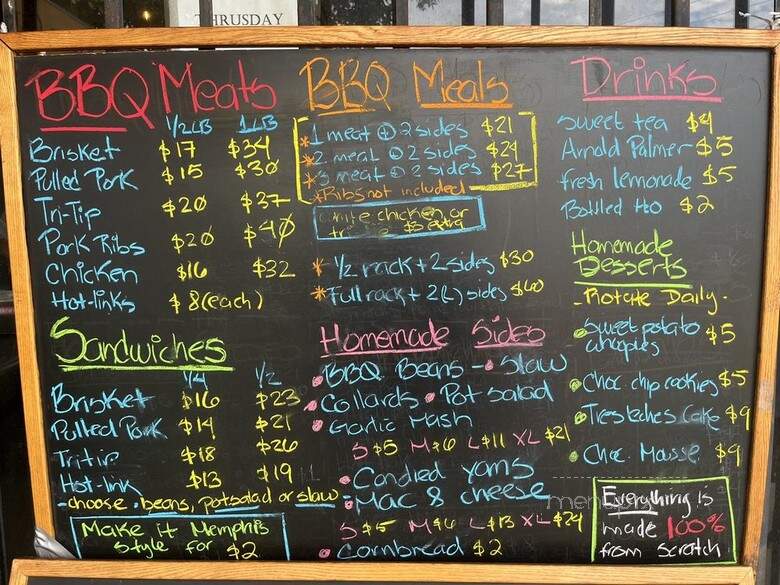 THRUSDAY
BBQ Meats
1/2 LB 1 LB
Brisket $17 $34
Pulled Pork $15 $30
Tri-Tip $20 $37
Pork Ribs $20 $40
Chicken $16 $32
Hot-links $8(each)
Sandwiches
1/4 1/2
Brisket $16 $23
Pulled Pork $14 $21
Tritip $18 $26
Hot-link $13 $19
-choose. beans, potsalad or slaw
Make it Memphis
style for $2
BBQ Meals
*1 meat + 2 sides $21
*2 meat + 2 sides $24
*3 meat + 2 sides $27
*Ribs not included
white chicken, or
$3 extra
*1/2 rack + 2 sides $30
*Full rack + 2(L) sides $60
Homemade Sides
BBQ Beans - Slaw
Collards Pot salad
Garlic Mash
S $5 M $6 L $11 XL $21
Candied yams
Mac & cheese
S $5 M $6 L $13 XL $24
Cornbread $2
Drinks
Sweet tea $4
Arnold Palmer $5
fresh lemonade $5
Bottled H2O $2
Homemade
Desserts
-Rotate Daily-
Sweet potato
whoopies $5
Choc chip cookies $5
Tres leches Cake $9
Choc. Mousse $9
Everything is
made 100%
from scratch